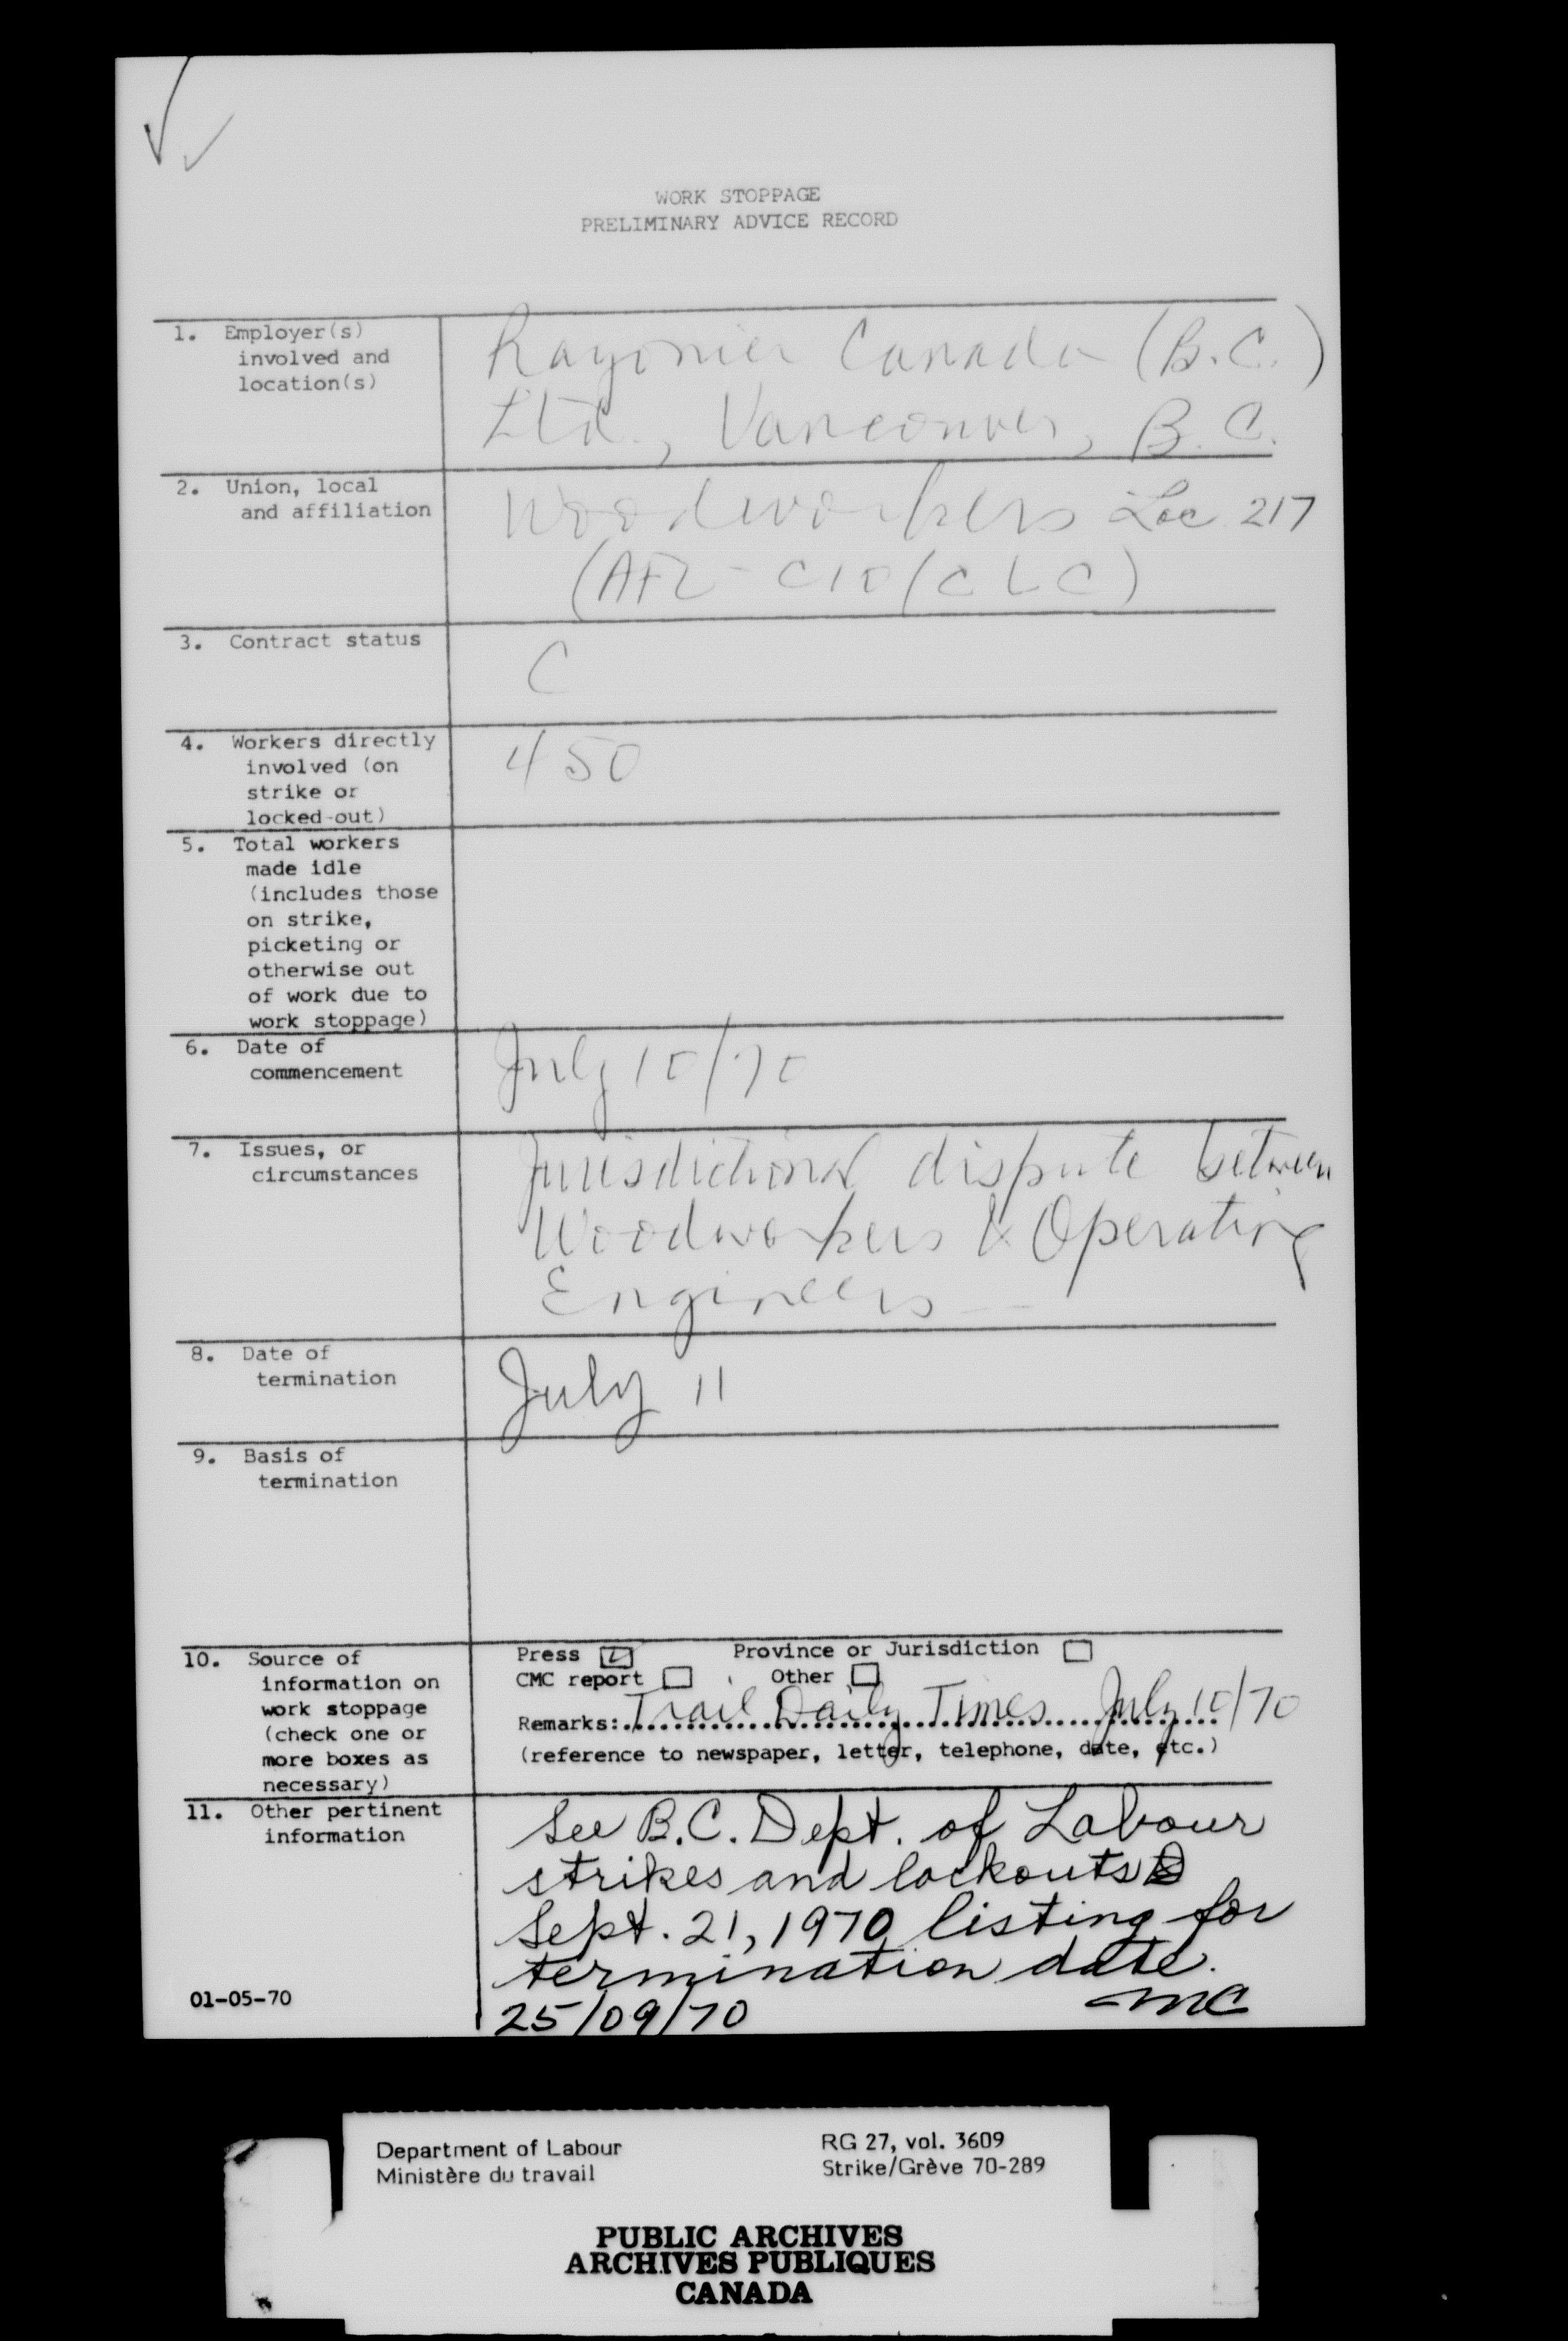 WORK STOPPAGE
PRELIMINARY ADVICE RECORD
1. Employer(s) involved and location(s)
Rayonier Canada (B.C.)
Ltd., Vancouver, B.C.
2. Union, local and affiliation
Woodworkers Loc 217
(AFL-CIO/CLC)
3. Contract status
C
4. Workers directly involved (on strike or locked-out)
450
5. Total workers made idle (includes those on strike, picketing or otherwise out of work due to work stoppage)
6. Date of commencement
July 10/70
7. Issues, or circumstances
Jurisdictional dispute between
Woodworkers & Operating
Engineers
8. Date of termination
July 11
9. Basis of termination
10. Source of information on work stoppage (check one or more boxes as necessary)
Press Province or Jurisdiction
CMC report Other
Remarks: Trail Daily Times July 10/70
(reference to newspaper, letter, telephone, date, etc.)
11. Other pertinent information
See B.C. Dept. of Labour
strikes and lockouts
Sept. 21, 1970 listing for
termination date.
01-05-70
25/09/70 MC
Department of Labour
Ministère du travail
RG 27, vol. 3609
Strike/Grève 70-289
PUBLIC ARCHIVES
ARCHIVES PUBLIQUES
CANADA